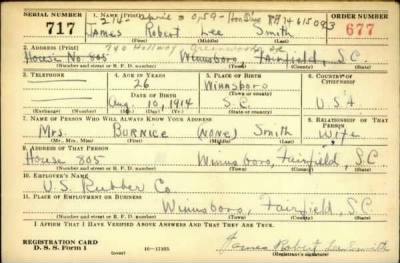 SERIAL NUMBER
1. NAME (Print)
ORDER NUMBER
717
James Robert Lee Smith
677
(First) (Middle) (Last)
2. ADDRESS (Print)
House No. 805 Winnsboro, Fairfield, S.C.
(Number and street or R. F. D. number) (Town) (County) (State)
3. TELEPHONE
4. AGE IN YEARS
5. PLACE OF BIRTH
6. COUNTRY OF CITIZENSHIP
26
Winnsboro
DATE OF BIRTH
(Town or county)
Aug. 10, 1914
S.C.
USA
(Exchange) (Number)
(Mo.) (Day) (Yr.)
(State or country)
7. NAME OF PERSON WHO WILL ALWAYS KNOW YOUR ADDRESS
8. RELATIONSHIP OF THAT PERSON
Mrs. Burnice (None) Smith Wife
(Mr., Mrs., Miss) (First) (Middle) (Last)
9. ADDRESS OF THAT PERSON
House 805 Winnsboro, Fairfield, S.C
(Number and street or R. F. D. number) (Town) (County) (State)
10. EMPLOYER'S NAME
U.S. Rubber Co
11. PLACE OF EMPLOYMENT OR BUSINESS
Winnsboro, Fairfield, S.C
(Number and street or R. F. D. number) (Town) (County) (State)
I AFFIRM THAT I HAVE VERIFIED ABOVE ANSWERS AND THAT THEY ARE TRUE.
REGISTRATION CARD
D. S. S. Form 1
(over)
16-17105
James Robert Lee Smith
(Registrant's signature)